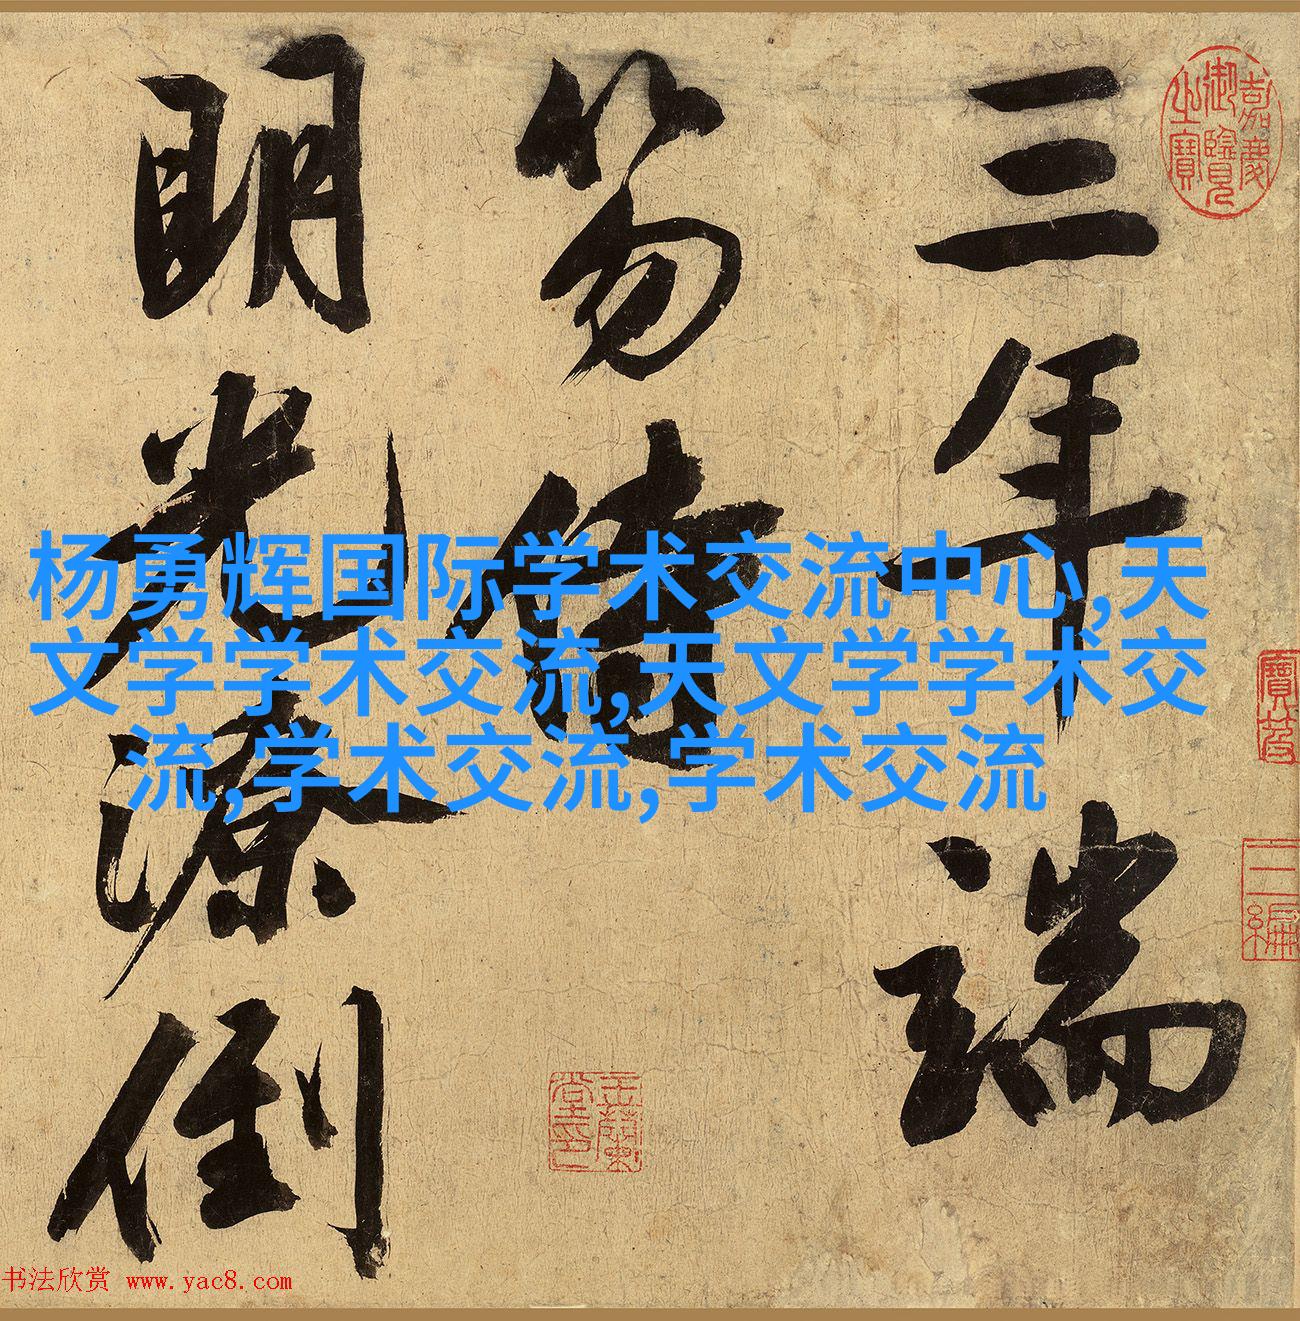 三年端
笏倚
明光潦倒
杨勇辉国际学术交流中心,天
文学学术交流,天文学学术交
流,学术交流,学术交流
嘉庆御览之宝
书法欣赏 www.yac8.com